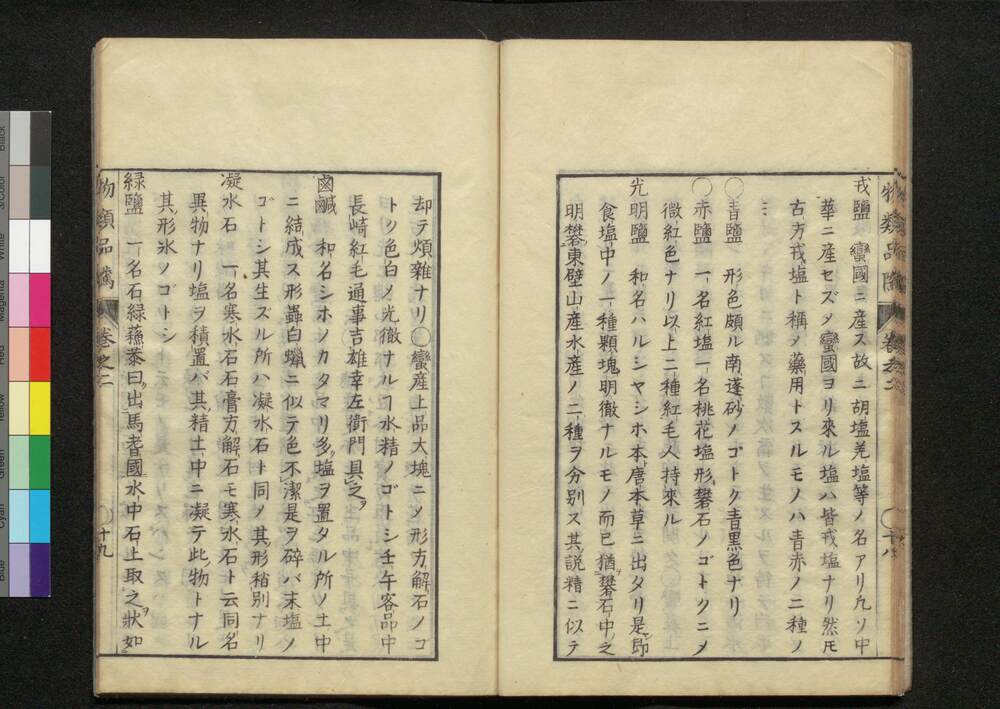 物類品隲 巻之二 十八
戎鹽 蠻國ニ産ス故ニ胡塩羌塩等ノ名アリ凡ソ中
華ニ産セズタ蠻國ヨリ來ル塩ハ皆戎塩ナリ然𪜈
古方戎塩ト稱乄藥用トスルモノハ青赤ノ二種ノ
ミ
〇青鹽 形色頗ル南蓬砂ノゴトク青黒色ナリ
〇赤鹽 一名紅塩一名桃花塩形礬石ノゴトクニ乄
微紅色ナリ以上二種紅毛人持來ル
光明鹽 和名ハルシヤシホ本唐本草ニ出タリ是即
食塩中ノ一種顆塊明徹ナルモノ而已猶礬石中之
明礬東壁山産水産ノ二種ヲ分別ス其説精ニ似テ
却テ煩雜ナリ〇蠻産上品大塊ニ乄形方解石ノゴ
トク色白乄光徹ナルヿ水精ノゴトシ壬午客品中
長崎紅毛通事吉雄幸左衛門具之
鹵鹹 和名シホノカタマリ多塩ヲ置タル所ノ土中
ニ結成ス形蘚白蝋ニ似テ色不潔是ヲ碎バ末塩ノ
ゴトシ其生ズル所ハ凝水石ト同乄其形稍別ナリ
凝水石 一名寒水石石膏方解石モ寒水石ト云同名
異物ナリ塩ヲ積置バ其精土中ニ凝テ此物トナル
其形氷ノゴトシ
緑鹽 一名石緑蘓恭曰出焉耆國水中石上取之狀如
物類品隲 巻之二 十九
Black
3/Color
White
Magenta
Red
Yellow
Green
Cyan
Blue